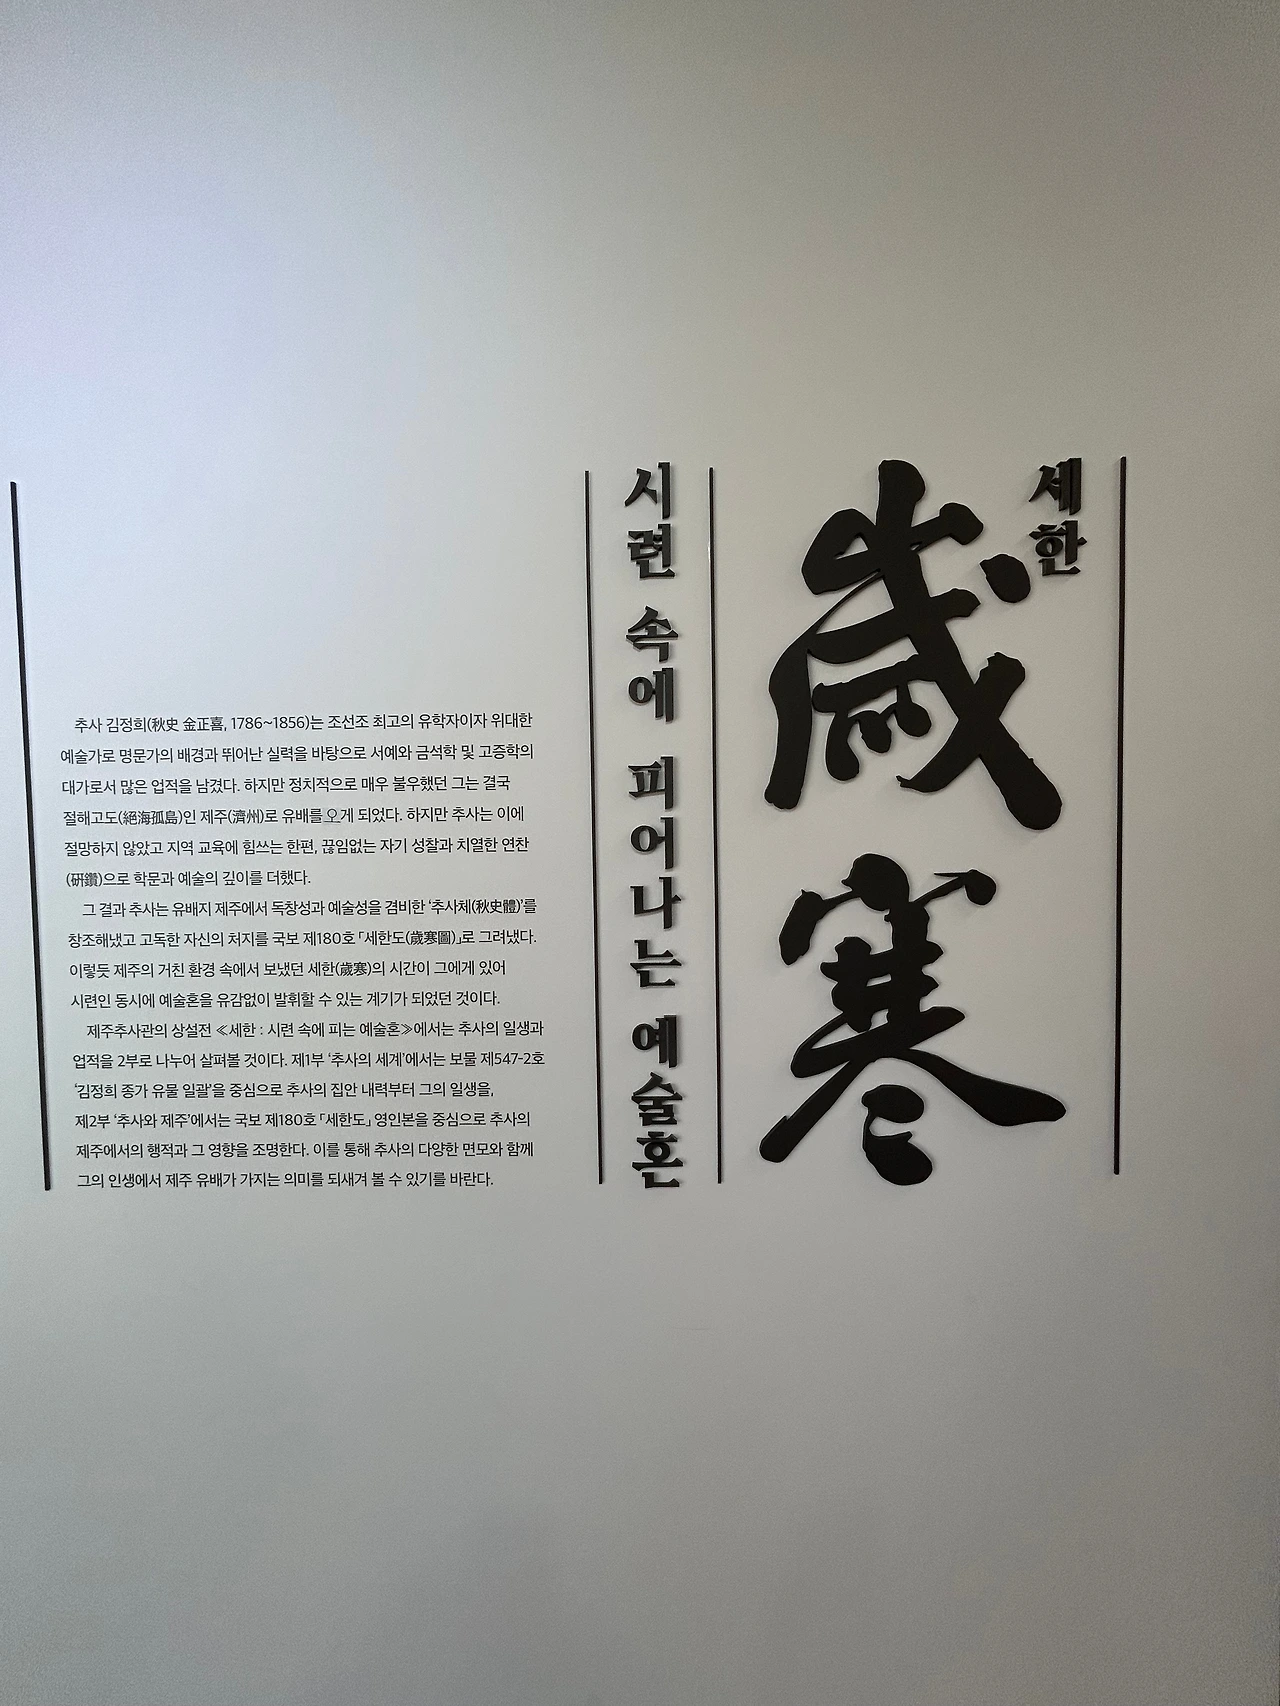 세한
歲寒
시련 속에 피어나는 예술혼
추사 김정희(秋史 金正喜, 1786~1856)는 조선조 최고의 유학자이자 위대한
예술가로 명문가의 배경과 뛰어난 실력을 바탕으로 서예와 금석학 및 고증학의
대가로서 많은 업적을 남겼다. 하지만 정치적으로 매우 불우했던 그는 결국
절해고도(絕海孤島)인 제주(濟州)로 유배를 오게 되었다. 하지만 추사는 이에
절망하지 않았고 지역 교육에 힘쓰는 한편, 끊임없는 자기 성찰과 치열한 연찬
(硏鑽)으로 학문과 예술의 깊이를 더했다.
그 결과 추사는 유배지 제주에서 독창성과 예술성을 겸비한 ‘추사체(秋史體)’를
창조해냈고 고독한 자신의 처지를 국보 제180호 「세한도(歲寒圖)」로 그려냈다.
이렇듯 제주의 거친 환경 속에서 보냈던 세한(歲寒)의 시간이 그에게 있어
시련인 동시에 예술혼을 유감없이 발휘할 수 있는 계기가 되었던 것이다.
제주추사관의 상설전 ≪세한 : 시련 속에 피는 예술혼≫에서는 추사의 일생과
업적을 2부로 나누어 살펴볼 것이다. 제1부 ‘추사의 세계’에서는 보물 제547-2호
‘김정희 종가 유물 일괄’을 중심으로 추사의 집안 내력부터 그의 일생을,
제2부 ‘추사와 제주’에서는 국보 제180호 「세한도」 영인본을 중심으로 추사의
제주에서의 행적과 그 영향을 조명한다. 이를 통해 추사의 다양한 면모와 함께
그의 인생에서 제주 유배가 가지는 의미를 되새겨 볼 수 있기를 바란다.